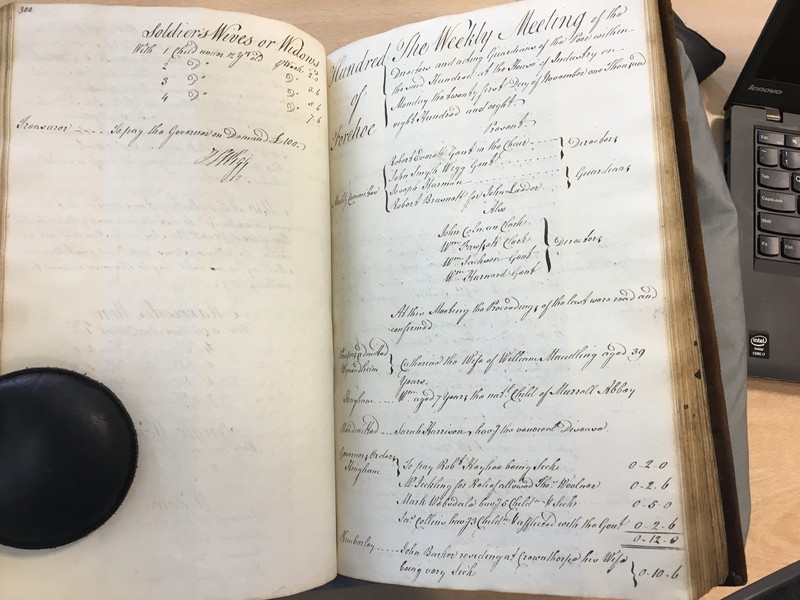 300
Soldiers Wives or Widows
With 1 Child under 12 Yrs old pr Week 2.0
2 Do " Do 3.6
3 Do " Do
4 Do " Do 7.6
Treasurer ...... To pay the Governor on Demand £100.
Hundred of Forehoe
The Weekly Meeting of the
Directors and acting Guardians of the Poor within
the said Hundred at the House of Industry on
Monday the twenty first Day of November one Thousand
eight Hundred and eight.
Present.
Weekly Committee
Robert Everett Gent in the Chair
John Smyth Wigg Gent
Directors
Joseph Harman
Robert Brasnett for John Lawder
Guardians
Also
John Colman Clerk
Wm Clerk
Wm Jackson Gent
Wm Gent
Directors
At this Meeting the Proceedings of the last were read and
confirmed
Paupers admitted
Wymondham
Catharine the Wife of William Maudling aged 39
Years.
Hingham .... Wm aged 7 Years the natl Child of Murrell Abbey
Readmitted .... Sarah Harrison, havg the venereal Disease
Governors Orders
Hingham
To pay Robt being Sick 0-2-0
Mr Sickling for Relief allowed Thos Woolnor 0-2-6
Mark havg 5 Childn & Sick 0-5-0
Jas Collins havg 3 Childn & afflicted with the Gout 0-2-6
0-12-0
Kimberley ...... John Barker residing at Crownthorpe his Wife
being very Sick 0-10-6
lenovo
Esc
Tab
CapsLock
Shift
Fn
Ctrl
intel
inside
CORE i7